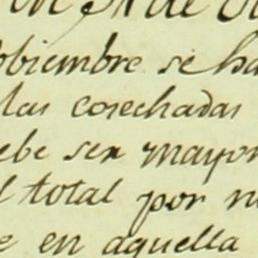 de
obiembre se ha
las cosechadas
ebe ser mayor
l total por
e en aquella